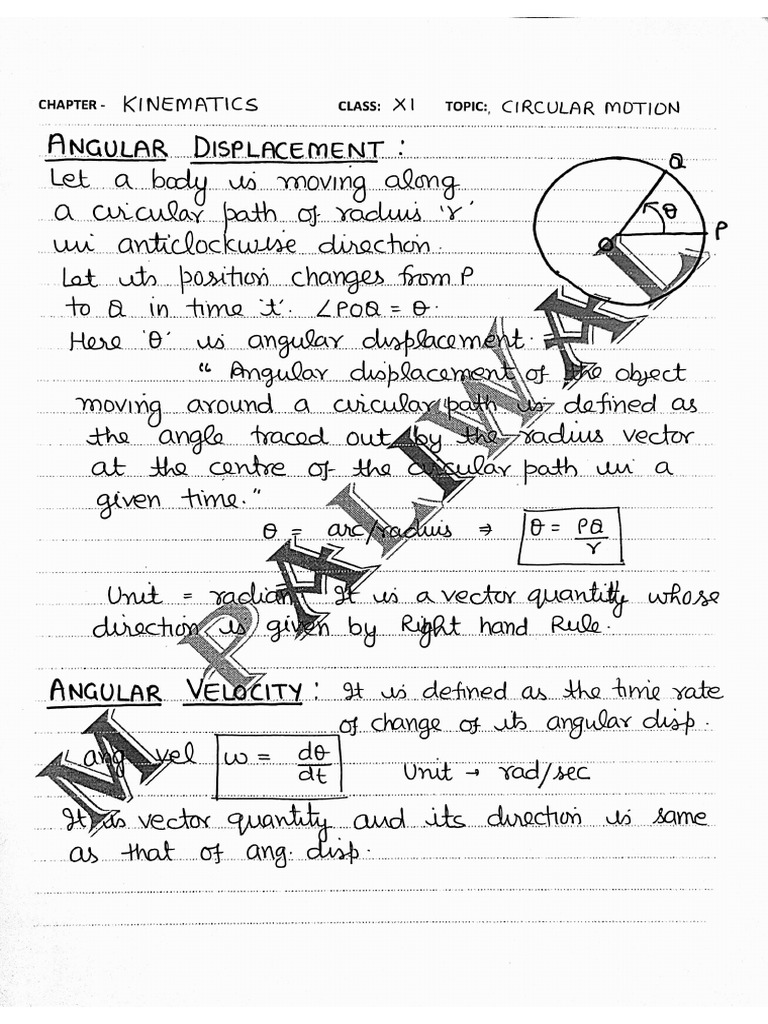 CHAPTER - KINEMATICS CLASS: XI TOPIC:, CIRCULAR MOTION
ANGULAR DISPLACEMENT :
Let a body is moving along
a circular path of radius 'r'
in anticlockwise direction.
Let its position changes from P
to Q in time 't'. ∠POQ = θ.
Here 'θ' is angular displacement.
Q
θ
P
O
" Angular displacement of the object
moving around a circular path is defined as
the angle traced out by the radius vector
at the centre of the circular path in a
given time."
θ = arc/radius ⇒ θ = PQ/r
Unit = radian. It is a vector quantity whose
direction is given by Right hand Rule.
ANGULAR VELOCITY : It is defined as the time rate
of change of its angular disp.
ang vel ω = dθ/dt Unit → rad/sec
It is vector quantity and its direction is same
as that of ang. disp.
M PALIWAL